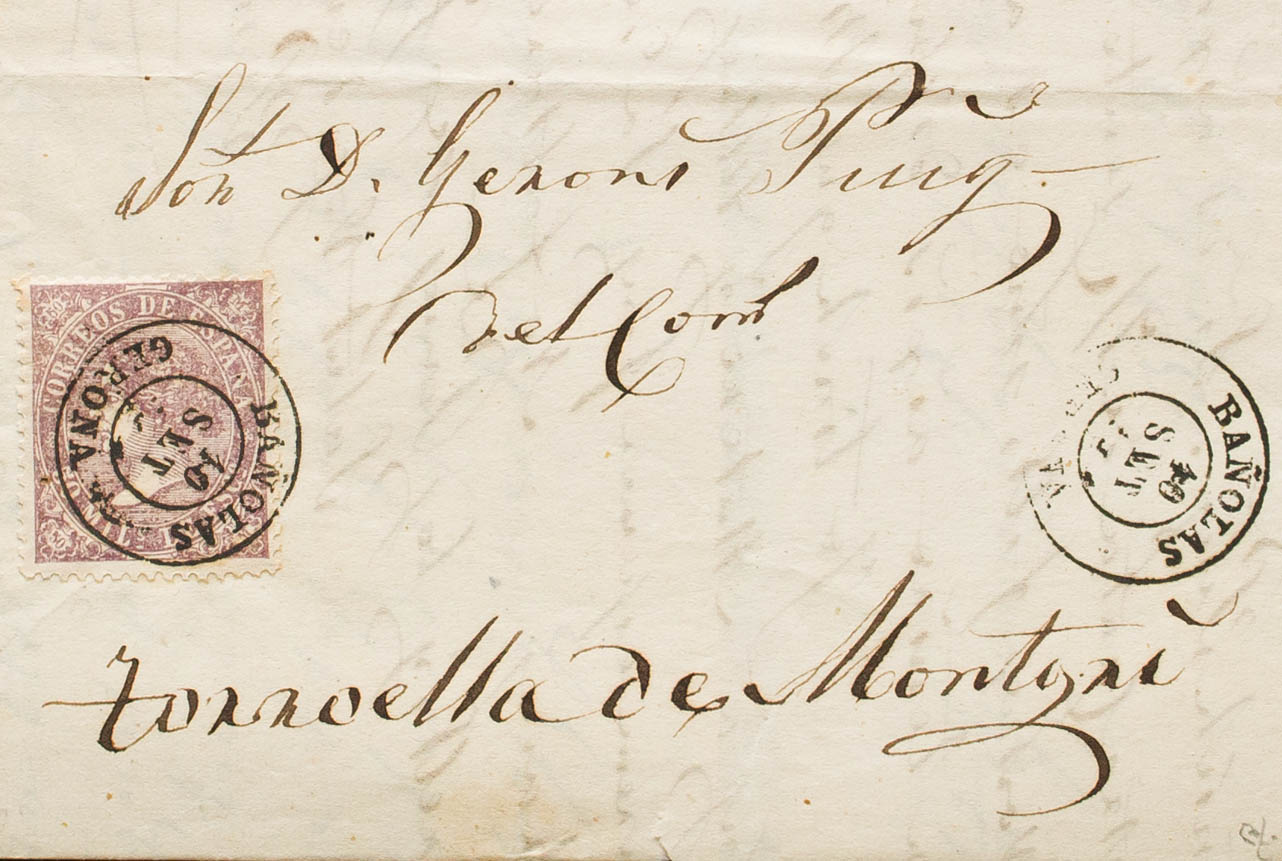 Sor D. Geroni Puig
del Com
Torroella de Montgri
CORREOS DE ESPAÑA
50 MIL
BAÑOLAS
GERONA
10
SET
BAÑOLAS
10
SET